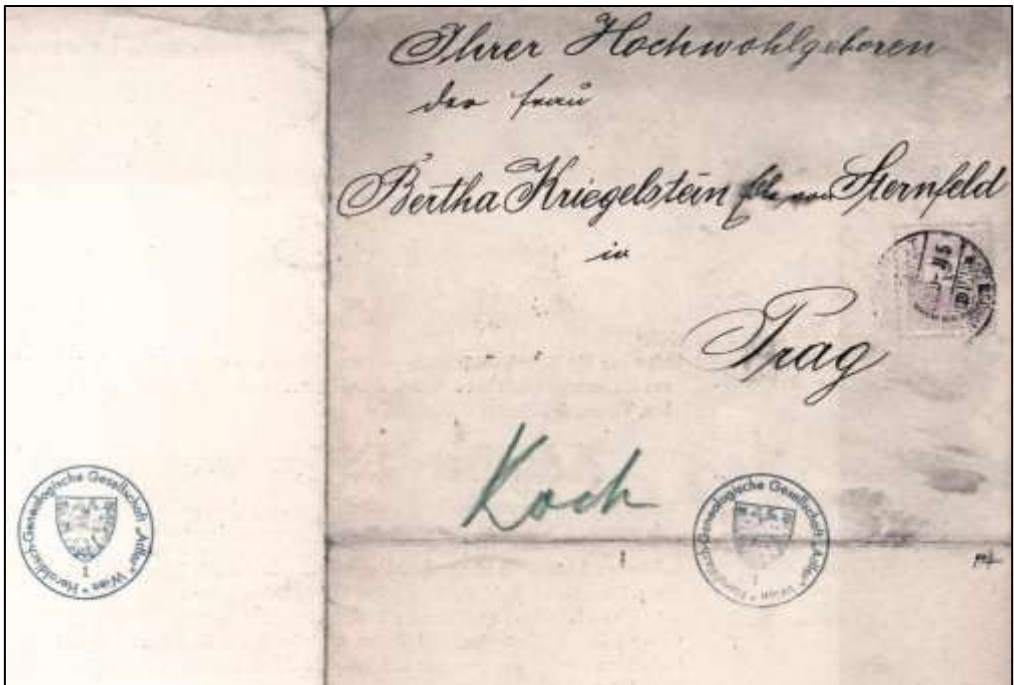 Ihrer Hochwohlgeboren
der Frau
Bertha Kriegelstein Edle von Sternfeld
in
Prag
Koch
Heraldisch-Genealogische Gesellschaft „Adler“ Wien *
Heraldisch-Genealogische Gesellschaft „Adler“ Wien *